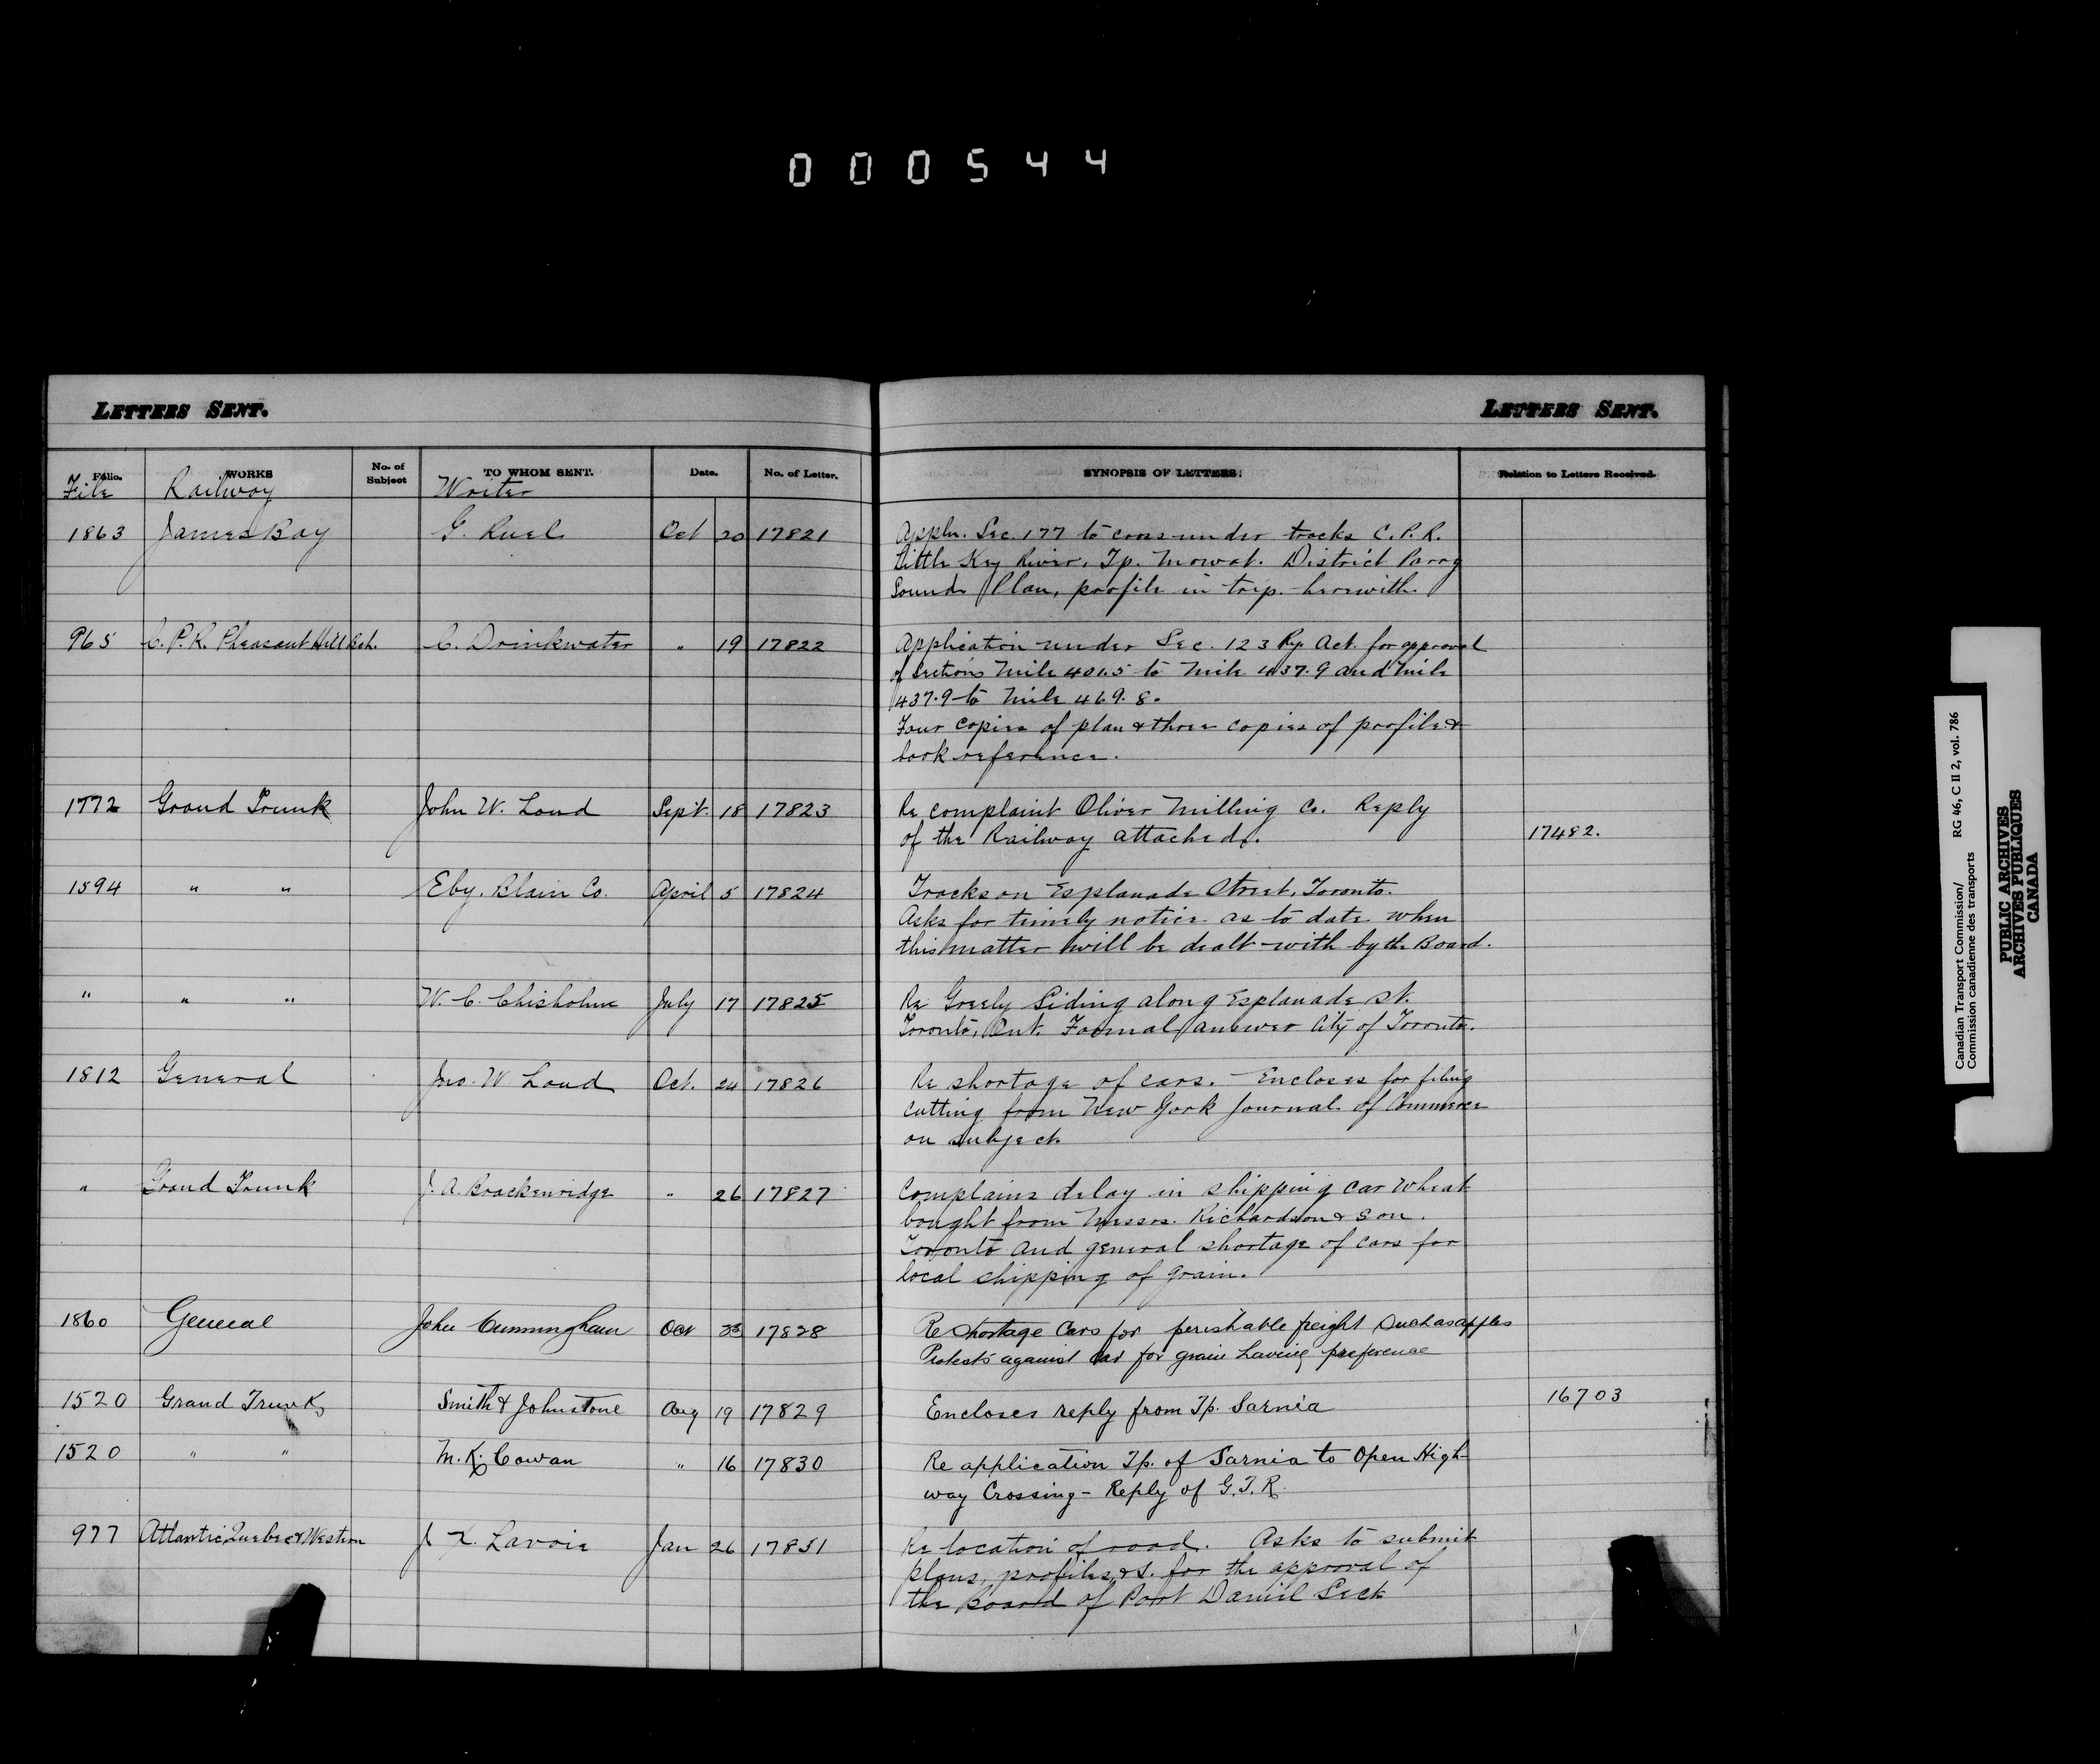 000544
LETTERS SENT.
LETTERS SENT.
Folio. WORKS No. of Subject TO WHOM SENT. Date. No. of Letter. SYNOPSIS OF LETTERS. Relation to Letters Received.
File Railway Writer
1863 James Bay G. Ruel Oct 20 17821 Appln. Sec. 177 to cross under tracks C.P.R.
Little Key River, Tp. Mowat. District Parry
Sound. Plan, profile in trip. herewith.
965 C.P.R. Pheasant Hill Bch. C. Drinkwater " 19 17822 Application under Sec. 123 Ry. Act. for approval
of Sections Mile 401.5 to Mile 437.9 and Mile
437.9 to Mile 469.8.
Four copies of plan & three copies of profile &
book reference.
1772 Grand Trunk John W. Loud Sept. 18 17823 Re complaint Oliver Milling Co. Reply
of the Railway attached. 17482.
1594 " " Eby. Blain Co. April 5 17824 Tracks on Esplanade Street, Toronto.
Asks for timely notice as to date when
this matter will be dealt with by the Board.
" " " W. C. Chisholm July 17 17825 Re Greely Siding along Esplanade St.
Toronto, Ont. Formal answer City of Toronto.
1812 General Jno. W Loud Oct. 24 17826 Re shortage of cars. - Encloses for filing
cutting from New York Journal of Commerce
on subject.
" Grand Trunk J. A. Brackenridge " 26 17827 Complains delay in shipping car wheat
bought from Messrs. Richardson & Son.
Toronto and general shortage of cars for
local shipping of grain.
1860 General John Cunningham Oct 17828 Re Shortage Cars for perishable freight such as apples
Protests against car for grain having preference
1520 Grand Trunk Smith & Johnstone Aug 19 17829 Encloses reply from Tp. Sarnia 16703
1520 " " M. K. Cowan " 16 17830 Re application Tp. of Sarnia to Open High-
way Crossing - Reply of G.T.R.
977 Atlantic, Quebec & Western J. X. Lavoie Jan 26 17831 Re location of road. Asks to submit
plans, profiles, &c. for the approval of
the Board of Port Daniel Sect.
Canadian Transport Commission/ RG 46, C II 2, vol. 786
Commission canadienne des transports
PUBLIC ARCHIVES
ARCHIVES PUBLIQUES
CANADA